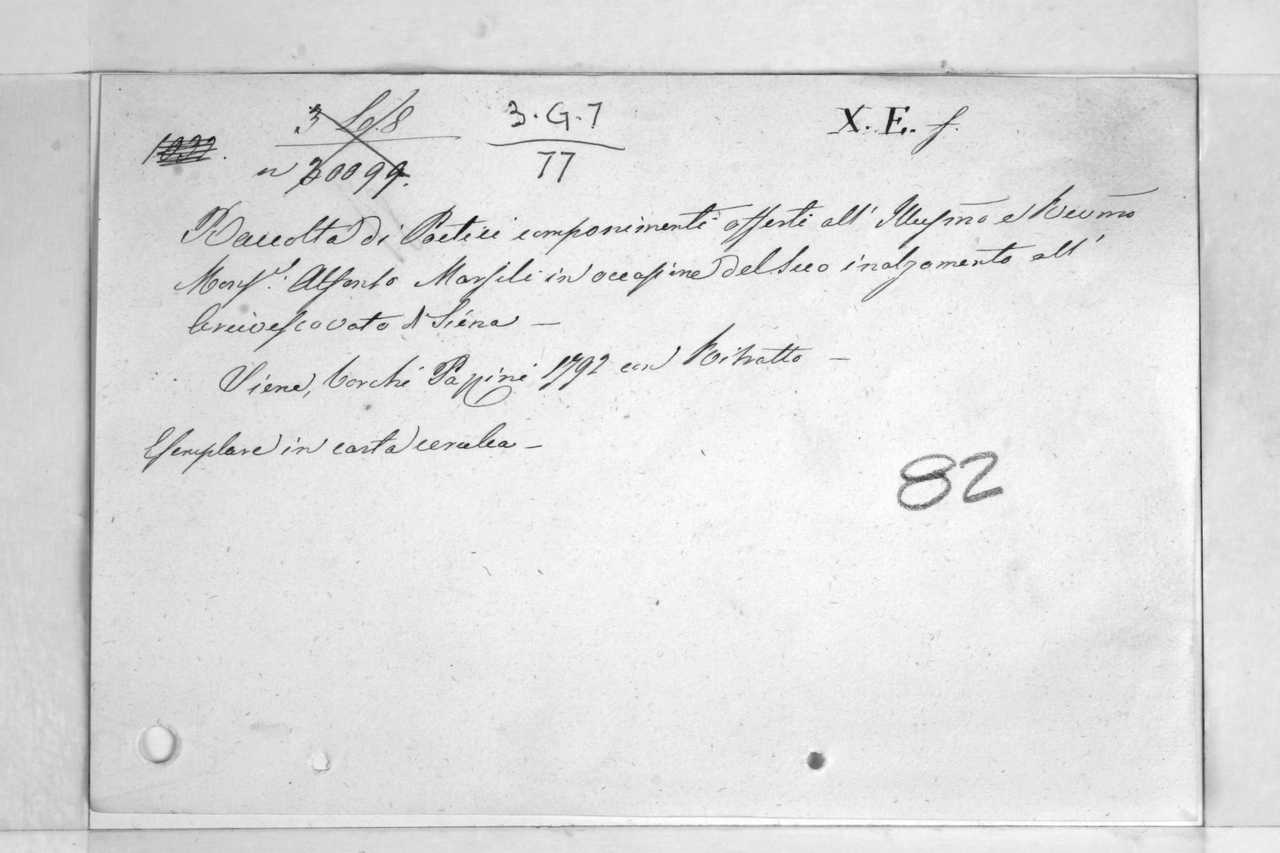 3. G. 7
X. E. f.
77
n 30099.
Raccolta di Poetici componimenti offerti all' Illusmo e Revmo
Monsr. Alfonso Marsili in occasione del suo inalzamento all'
Arcivescovato di Siena —
Siena, Torchi Pazzini 1792 con Ritratto —
Esemplare in carta cerulea —
82